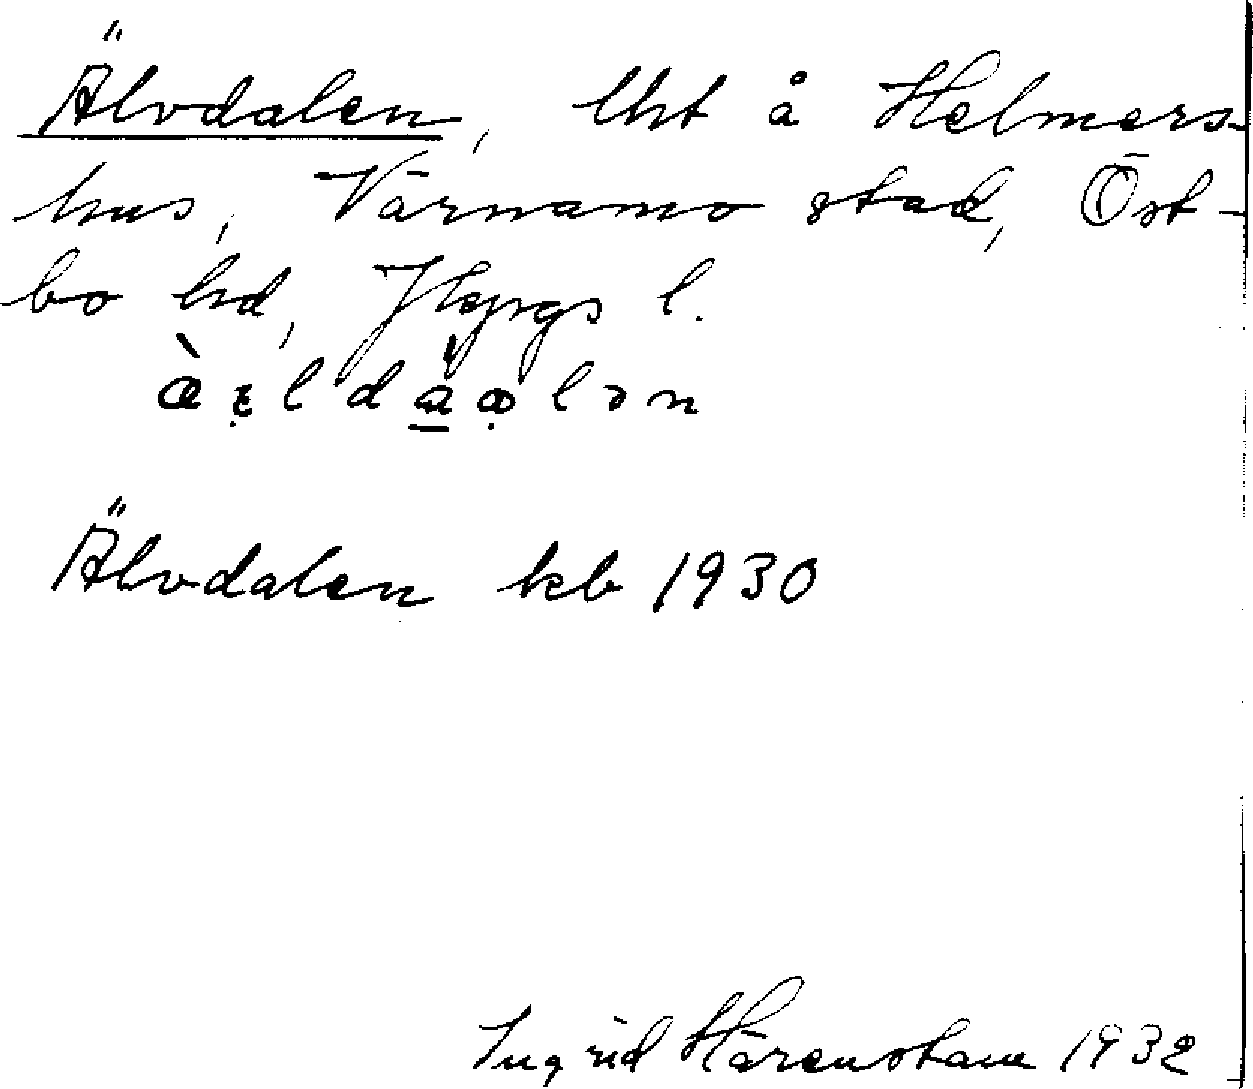 Älvdalen, lht å Helmers-
hus, Värnamo stad, Öst-
bo hd, Jkpgs l.
Älvdalen kb 1930
Ingrid Härenstam 1932